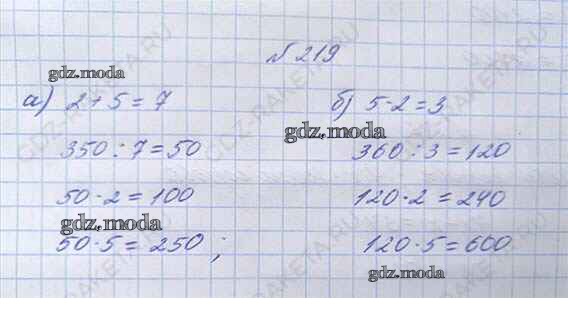 № 219
gdz.moda
а) 2 + 5 = 7
б) 5 - 2 = 3
gdz.moda
350 : 7 = 50
360 : 3 = 120
50 · 2 = 100
120 · 2 = 240
gdz.moda
50 · 5 = 250 ;
120 · 5 = 600
gdz.moda
GDZ-RAKETA.RU